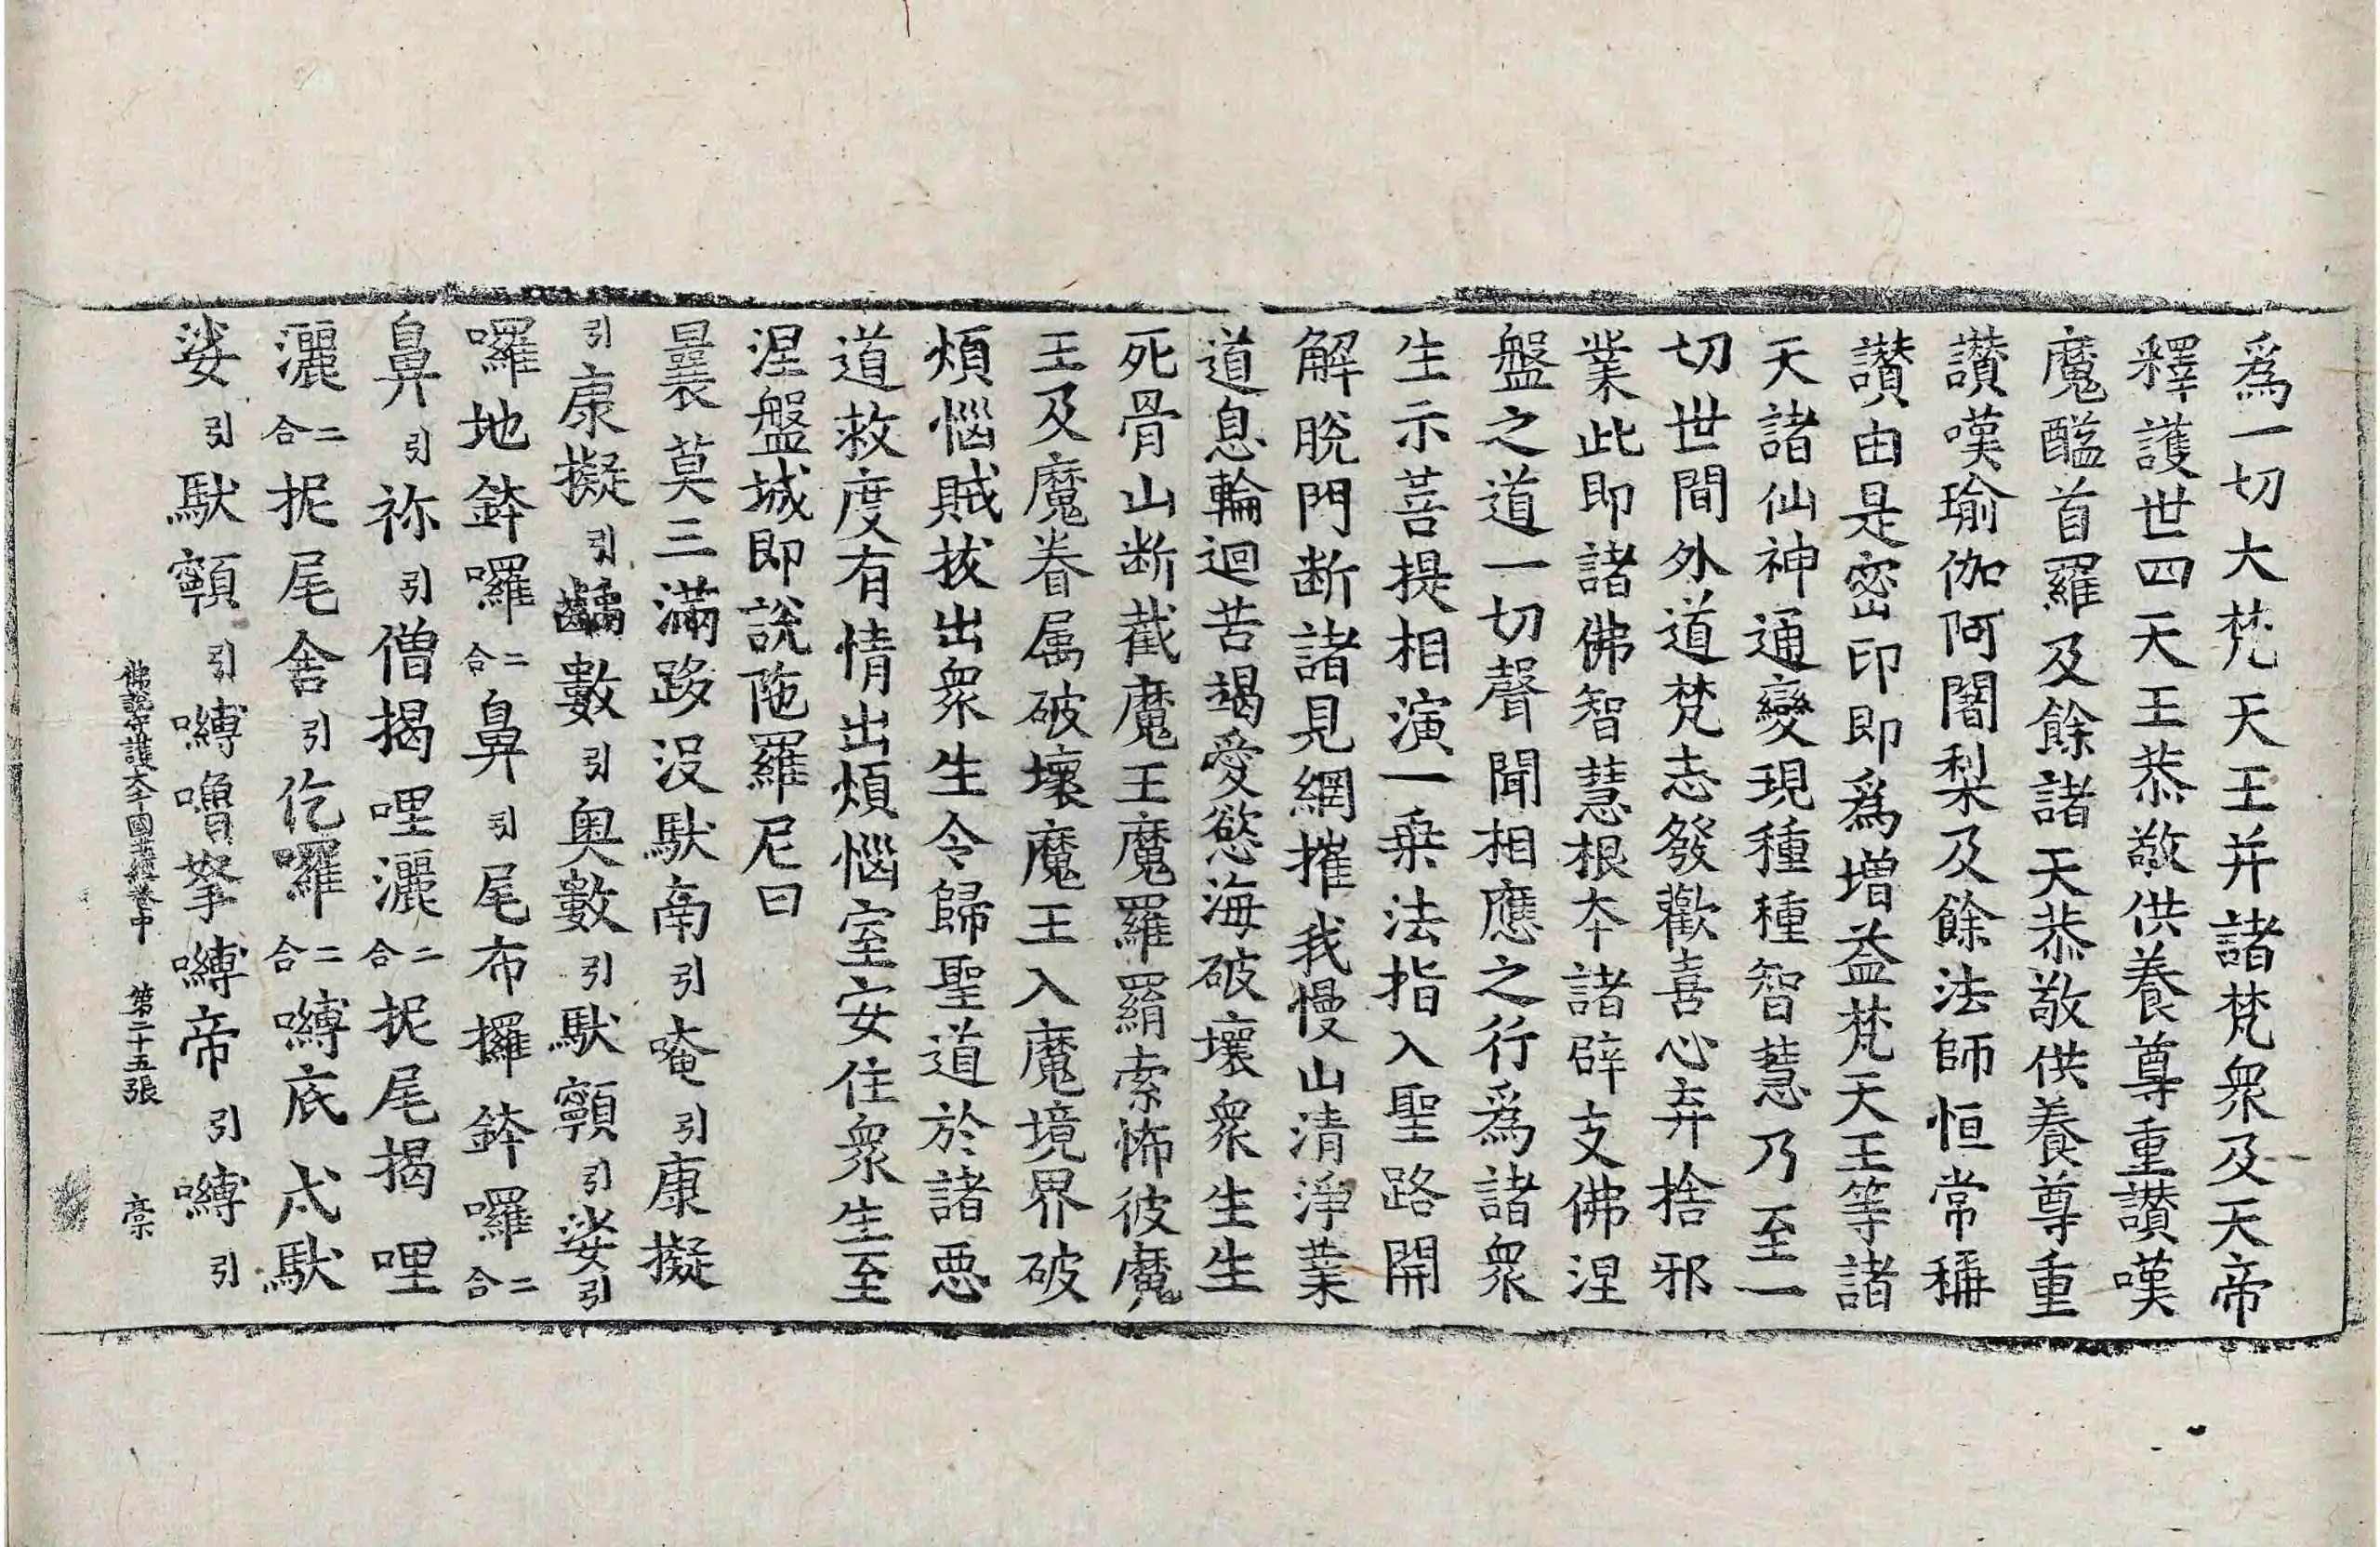 爲一切大梵天王并諸梵衆及天帝
釋護世四天王恭敬供養尊重讃嘆
魔醯首羅及餘諸天恭敬供養尊重
讃嘆瑜伽阿闍梨及餘法師恒常稱
讃由是密印即爲增益梵天王等諸
天諸仙神通變現種種智慧乃至一
切世間外道梵志發歡喜心弃捨邪
業此即諸佛智慧根本諸辟支佛涅
盤之道一切聲聞相應之行爲諸衆
生示菩提相演一乗法指入聖路開
解脫門断諸見網摧我慢山清淨業
道息輪迴苦竭愛慾海破壞衆生生
死骨山断截魔王魔羅羂索怖彼魔
王及魔眷属破壞魔王入魔境界破
煩惱賊拔出衆生令歸聖道於諸惡
道救度有情出煩惱室安住衆生至
涅盤城即說陁羅尼曰
曩莫三滿跢没馱南引唵引康擬
引康擬引齲數引奥數引馱顐引娑引
囉地鉢囉二合鼻引尾布攞鉢囉二合
鼻引祢引僧揭哩灑二合抳尾揭哩
灑二合抳尾舍引仡囉二合嚩底戍馱
娑引馱顐引嚩嚕拏嚩帝引嚩引
佛說守護大千國土經卷中 第二十五張 槀